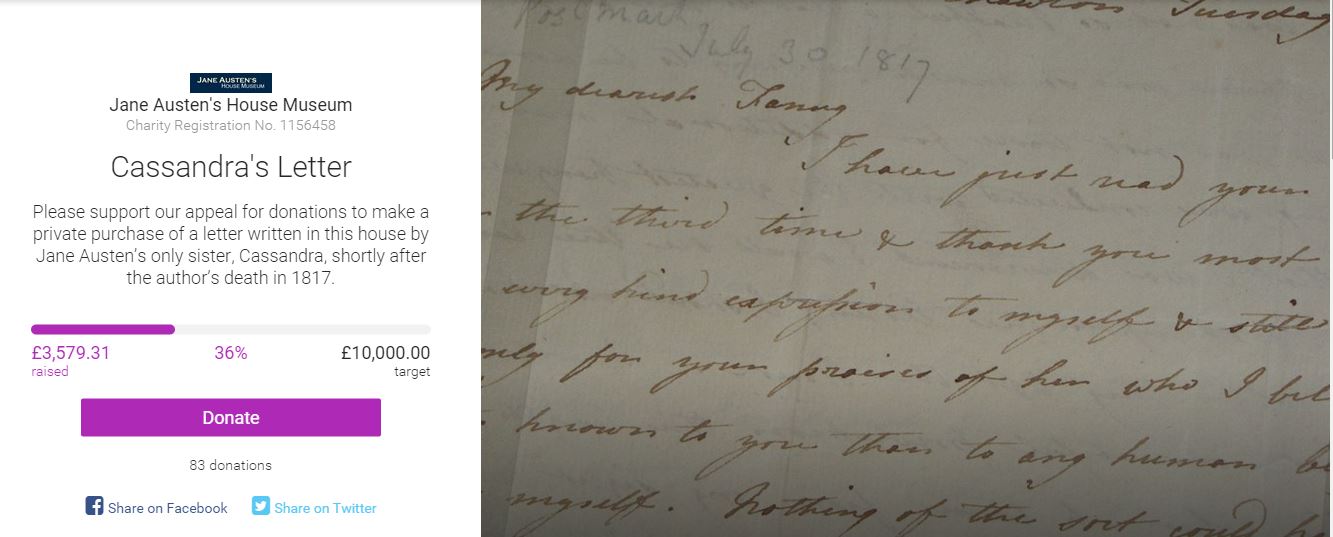 JANE AUSTEN'S
HOUSE MUSEUM
Jane Austen's House Museum
Charity Registration No. 1156458
Cassandra's Letter
Please support our appeal for donations to make a
private purchase of a letter written in this house by
Jane Austen's only sister, Cassandra, shortly after
the author's death in 1817.
£3,579.31 36% £10,000.00
raised target
Donate
83 donations
Share on Facebook Share on Twitter
Tuesday
Postmark
July 30 1817
My dearest Fanny
I have just read your
the third time & thank you most
every kind expression to myself & still
for your praises of her who I
known to you than to any human
myself. Nothing of the sort could